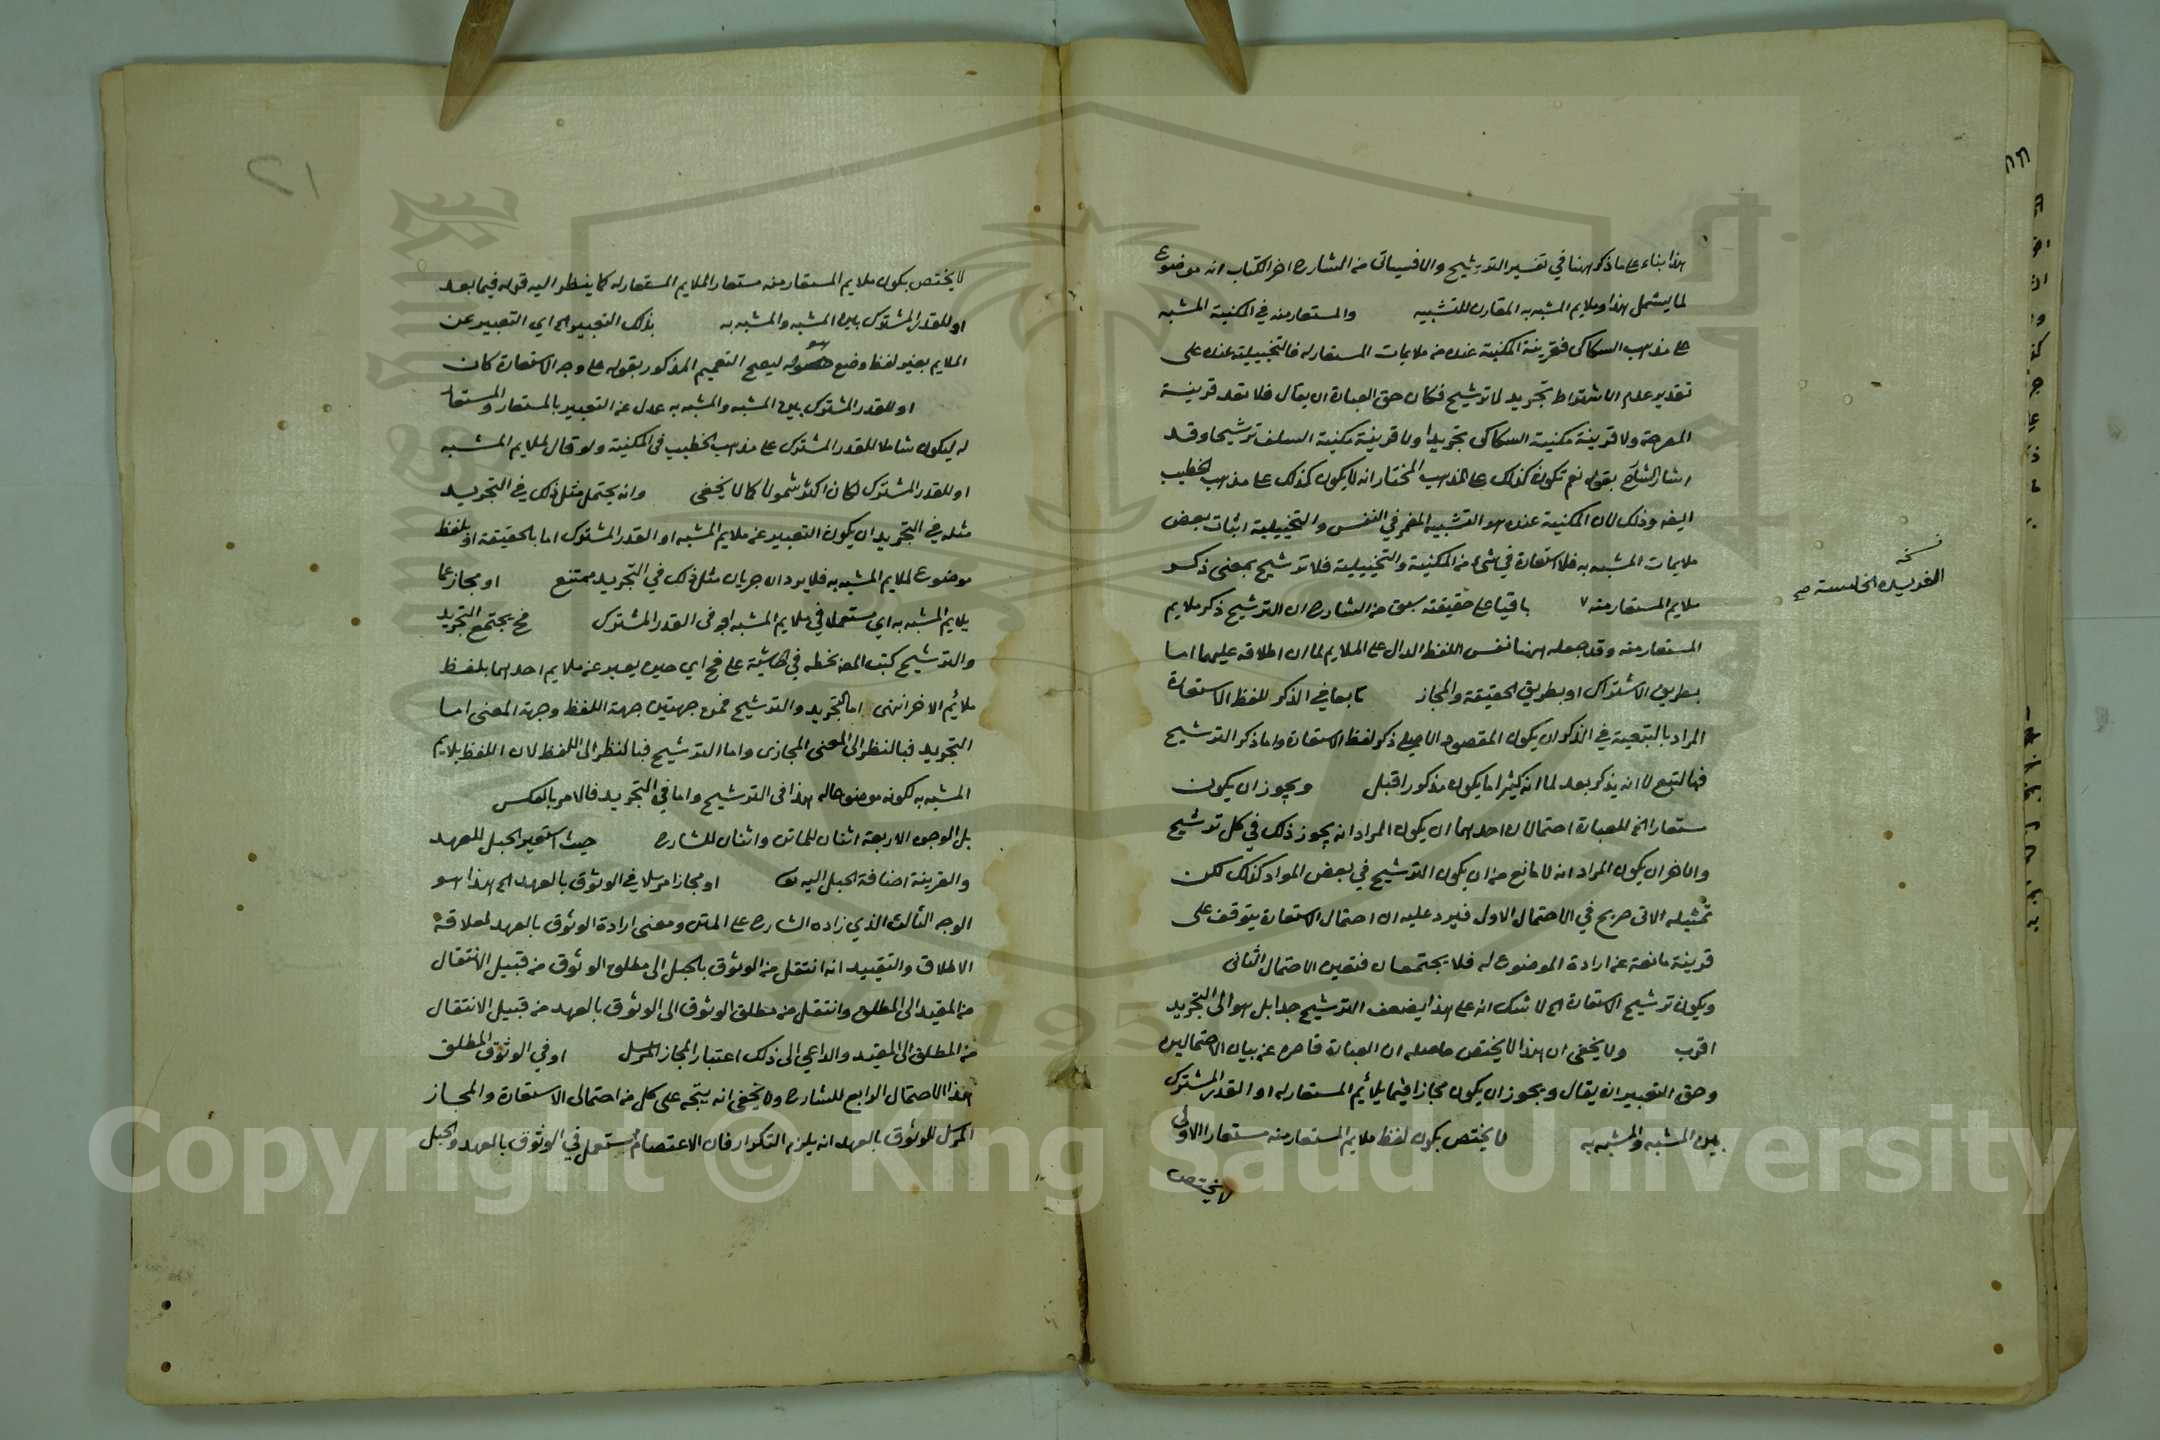 هذا بناء على ما ذكر ههنا في تفسير الترشيح والا فسيأتى من الشارح اخر الكتاب انه موضوع
لما يشمل هذا وملايم المشبه به المقارن للتشبيه والمستعار منه في المكنية المشبه
على مذهب السكاكى فقرينة المكنية عنده من ملايمات المستعار له فالتخييلية عنده على
تقدير عدم الاشتراط تجريد لا ترشيح فكان حق العبارة ان يقال فلا تعد قرينة
المصرحة ولا قرينة مكنية السكاكى تجريدا ولا قرينة مكنية السلف ترشيحا وقد
اشار الشارح بقوله نعم تكون كذلك على المذهب المختار انه لا يكون كذلك على مذهب الخطيب
ايضا وذلك لان المكنية عنده هو التشبيه المضمر في النفس والتخييلية اثبات بعض
ملايمات المشبه به فلا استعارة في شئ من المكنية والتخييلية فلا ترشيح بمعنى ذكر
ملايم المستعار منه باقيا على حقيقته سبق من الشارح ان الترشيح ذكر ملايم
المستعار منه وقد جعله ههنا نفس اللفظ الدال على الملايم لما ان اطلاقه عليهما اما
بطريق الاشتراك او بطريق الحقيقة والمجاز تابعا في الذكر للفظ الاستعارة
المراد بالتبعية في الذكر ان يكون المقصود الاصلي ذكر لفظ الاستعارة واما ذكر الترشيح
فبالتبع لا انه يذكر بعد لما انه كثيرا ما يكون مذكورا قبل ويجوز ان يكون
مستعارا الخ للعبارة احتمالان احدهما ان يكون المراد انه يجوز ذلك في كل ترشيح
والاخر ان يكون المراد انه لا مانع من ان يكون الترشيح في بعض المواد كذلك لكن
تمثيله الاتى صريح في الاحتمال الاول فيرد عليه ان احتمال الاستعارة يتوقف على
قرينة مانعة عن ارادة الموضوع له فلا يجتمعان فتعين الاحتمال الثانى
ويكون ترشيح الاستعارة الخ لا شك انه على هذا يضعف الترشيح جدا بل هو الى التجريد
اقرب ولا يخفى ان هذا لا يختص حاصله ان العبارة قاصرة عن بيان الاحتمالين
وحق التعبير ان يقال ويجوز ان يكون مجازا فيما يلائم المستعار له او القدر المشترك
بين المشبه والمشبه به لا يختص بكون لفظ ملايم المستعار منه مستعارا الاولى
لا يختص
نسخه
الفريدة الخامسة صح
٢١
لا يختص بكون ملايم المستعار منه مستعارا لملايم المستعار له كما ينظر اليه قوله فيما بعد
او للقدر المشترك بين المشبه والمشبه به بذلك التعبير الخ اي التعبير عن
الملايم بغير لفظ وضع هو له ليصح التعميم المذكور بقوله على وجه الاستعارة كان
او للقدر المشترك بين المشبه والمشبه به عدل عن التعبير بالمستعار والمستعار
له ليكون شاملا للقدر المشترك على مذهب الخطيب في المكنية ولو قال لملايم المشبه
او للقدر المشترك لكان اكثر شمولا كما لا يخفى وانه يحتمل مثل ذلك في التجريد
مثله في التجريد ان يكون التعبير عن ملايم المشبه او القدر المشترك اما بالحقيقة او بلفظ
موضوع لملايم المشبه به فلا يرد ان جريان مثل ذلك في التجريد ممتنع او مجاز عما
يلايم المشبه به اي مستعملا في ملايم المشبه او في القدر المشترك فح يجتمع التجريد
والترشيح كتب المص بخطه في الحاشية على فح اى حين يعبر عن ملايم احدهما بلفظ
ملائم الاخر انتهى اما التجريد والترشيح فمن جهتين جهة اللفظ وجهة المعنى اما
التجريد فبالنظر الى المعنى المجازى واما الترشيح فبالنظر الى اللفظ لان اللفظ يلايم
المشبه به لكونه موضوعا له هذا فى الترشيح واما في التجريد فالامر بالعكس
بل الوجوه الاربعة اثنان للماتن واثنان للشارح حيث استعير الحبل للعهد
والقرينة اضافة الحبل اليه تعا او مجازا مرسلا في الوثوق بالعهد الخ هذا هو
الوجه الثالث الذي زاده الشارح على المتن ومعنى ارادة الوثوق بالعهد لعلاقة
الاطلاق والتقييد انه انتقل من الوثوق بالحبل الى مطلق الوثوق من قبيل الانتقال
من المقيد الى المطلق وانتقل من مطلق الوثوق الى الوثوق بالعهد من قبيل الانتقال
من المطلق الى المقيد والداعي الى ذلك اعتبار المجاز المرسل او في الوثوق المطلق
هذا الاحتمال الرابع للشارح ولا يخفى انه يتجه على كل من احتمالى الاستعارة والمجاز
المرسل للوثوق بالعهد انه يلزم التكرار فان الاعتصام مستعمل في الوثوق بالعهد والحبل
Copyright © King Saud University